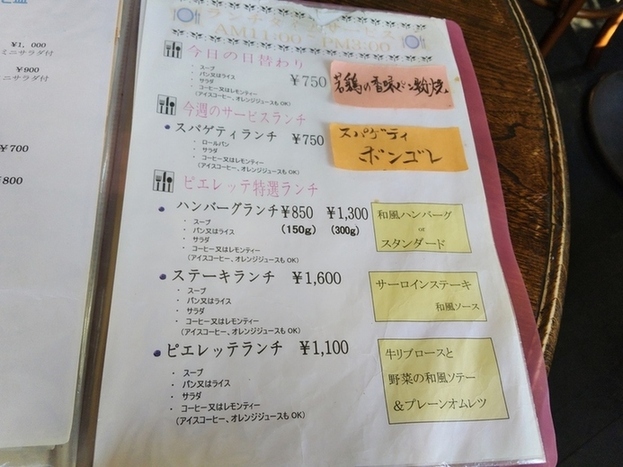 ¥1,000
ミニサラダ付
¥900
ミニサラダ付
¥700
¥800
ランチタイムサービス
AM11:00～PM3:00
今日の日替わり
・ スープ
・ パン又はライス
・ サラダ
・ コーヒー又はレモンティー
(アイスコーヒー、オレンジジュースもOK)
¥750
若鶏の香味パン粉焼
今週のサービスランチ
スパゲティランチ ¥750
・ ロールパン
・ サラダ
・ コーヒー又はレモンティー
(アイスコーヒー、オレンジジュースもOK)
スパゲティ
ボンゴレ
ピエレッテ特選ランチ
ハンバーグランチ ¥850 ¥1,300
(150g) (300g)
・ スープ
・ パン又はライス
・ サラダ
・ コーヒー又はレモンティー
(アイスコーヒー、オレンジジュースもOK)
和風ハンバーグ
or
スタンダード
ステーキランチ ¥1,600
・ スープ
・ パン又はライス
・ サラダ
・ コーヒー又はレモンティー
(アイスコーヒー、オレンジジュースもOK)
サーロインステーキ
和風ソース
ピエレッテランチ ¥1,100
・ スープ
・ パン又はライス
・ サラダ
・ コーヒー又はレモンティー
(アイスコーヒー、オレンジジュースもOK)
牛リブロースと
野菜の和風ソテー
&プレーンオムレツ